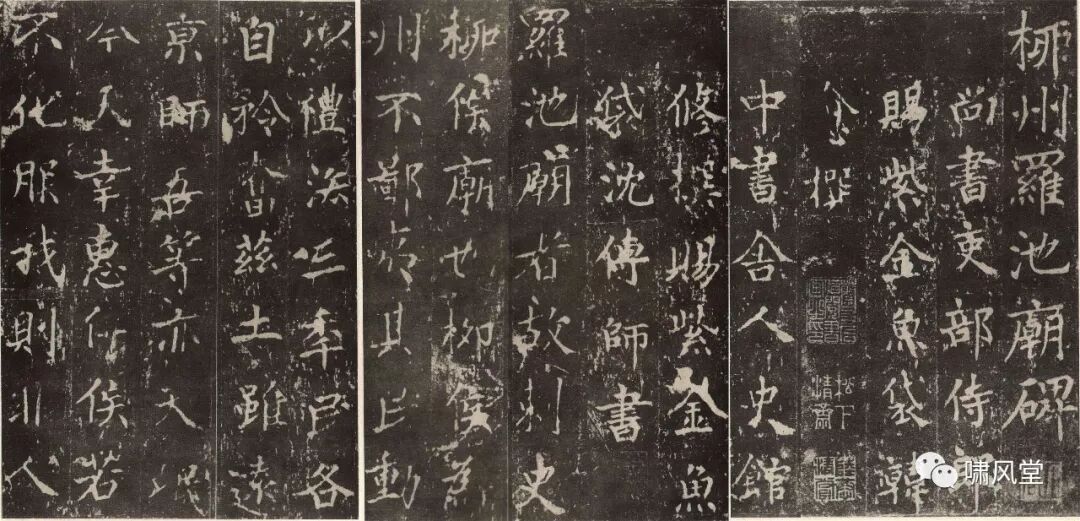 柳州羅池廟碑
尚書吏部侍郎
賜紫金魚袋韓
愈撰
中書舍人史館
修撰賜紫金魚
袋沈傳師書
羅池廟者故刺史
柳侯廟也柳侯為
州不鄙夷其民動
以禮法三年民各
自矜奮茲土雖遠
京師吾等亦天氓
今天幸惠仁侯若
不化服我則非人
松下
清齋
啸风堂